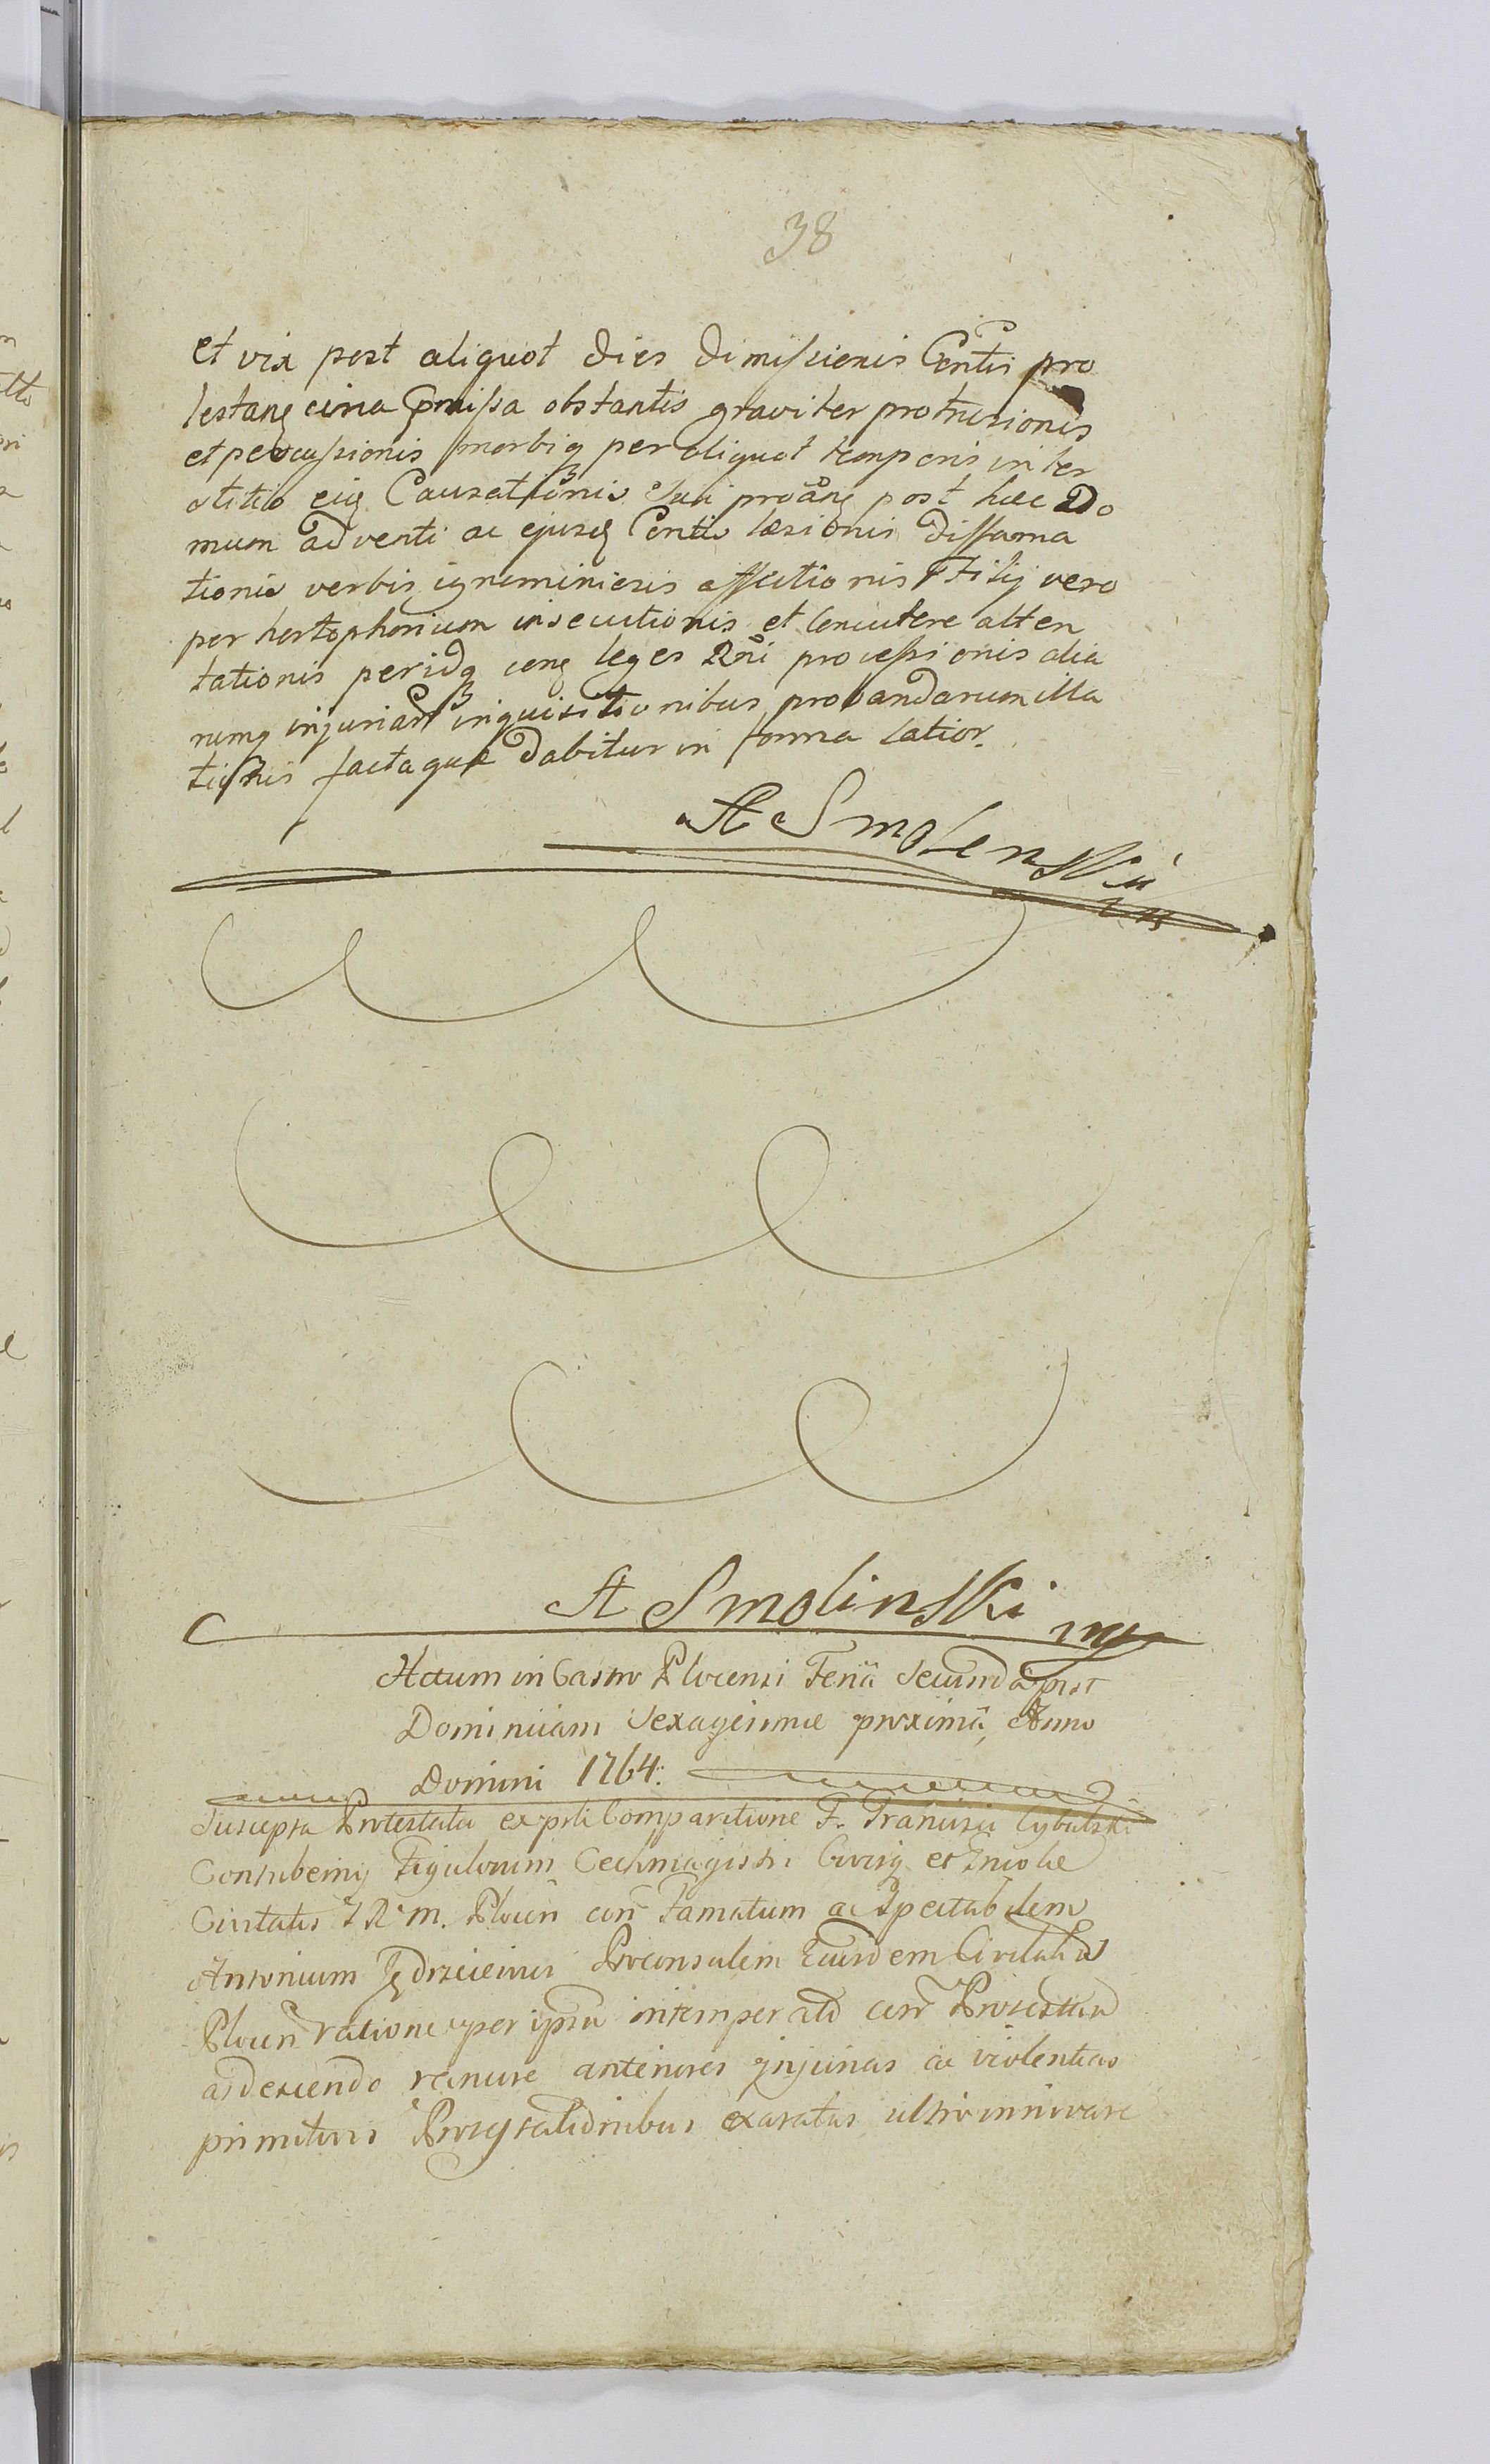 38
et vix post aliquot dies dimissionis Conttis pro
testanq circa pmissa obstantis graviter protrusionis
et percussionis morbiq per aliquot temporis inter
stitio eiq Causationis Sui proang post haec Do
mum adventi ac ejusq Conttis laesionis diffama
tionis verbis ignominiosis affectionis Filij vero
per hortophorium insecutionis et concutere atten
tationis peridq conq leges Rni processionis alia
rumq injuriar inquisitionibus probandarum illa
tionis facta quae dabitur in forma latior.
A Smolenski
A Smolinski mp
Actum in Castro Plocensi Feria Secunda post
Dominicam Sexagesimae proxima, Anno
Domini 1764.
Suscepta Protestatio ex psli Comparitione F. Francisci Cybulski
Contubernij Figulorum Cechmagistri Civisq et Incolae
Civitatis S R M. Plocen con Famatum ac Spectabilem
Antonium Jędrzeiewicz Proconsulem Eiusdem Civitatis
Plocen ratione per ipsum intemperato con Protestan
ardescendo rancore anteriores Injurias ac violentias
primitivis Protestationibus exaratas ultro innovare